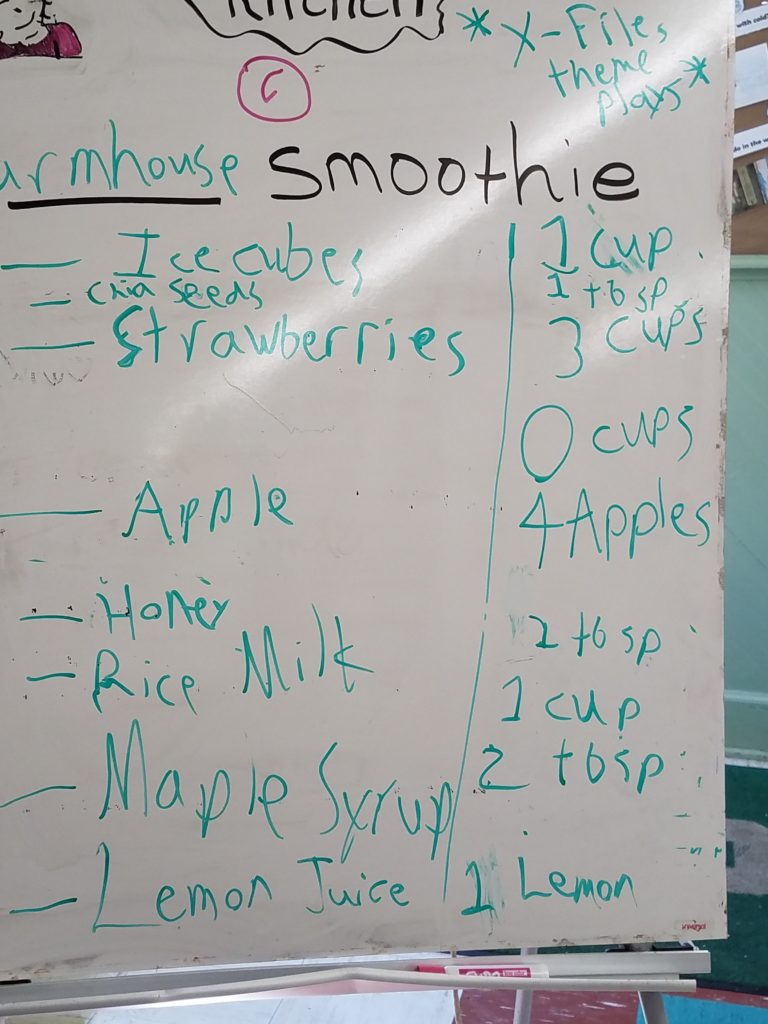 Kitchen
* X-Files
theme
plays *
armhouse Smoothie
— Ice cubes 1 cup
— Chia seeds 1 tbsp
— Strawberries 3 cups
0 cups
— Apple 4 Apples
— Honey 2 tbsp
— Rice Milk 1 cup
— Maple Syrup 2 tbsp
— Lemon Juice 1 Lemon